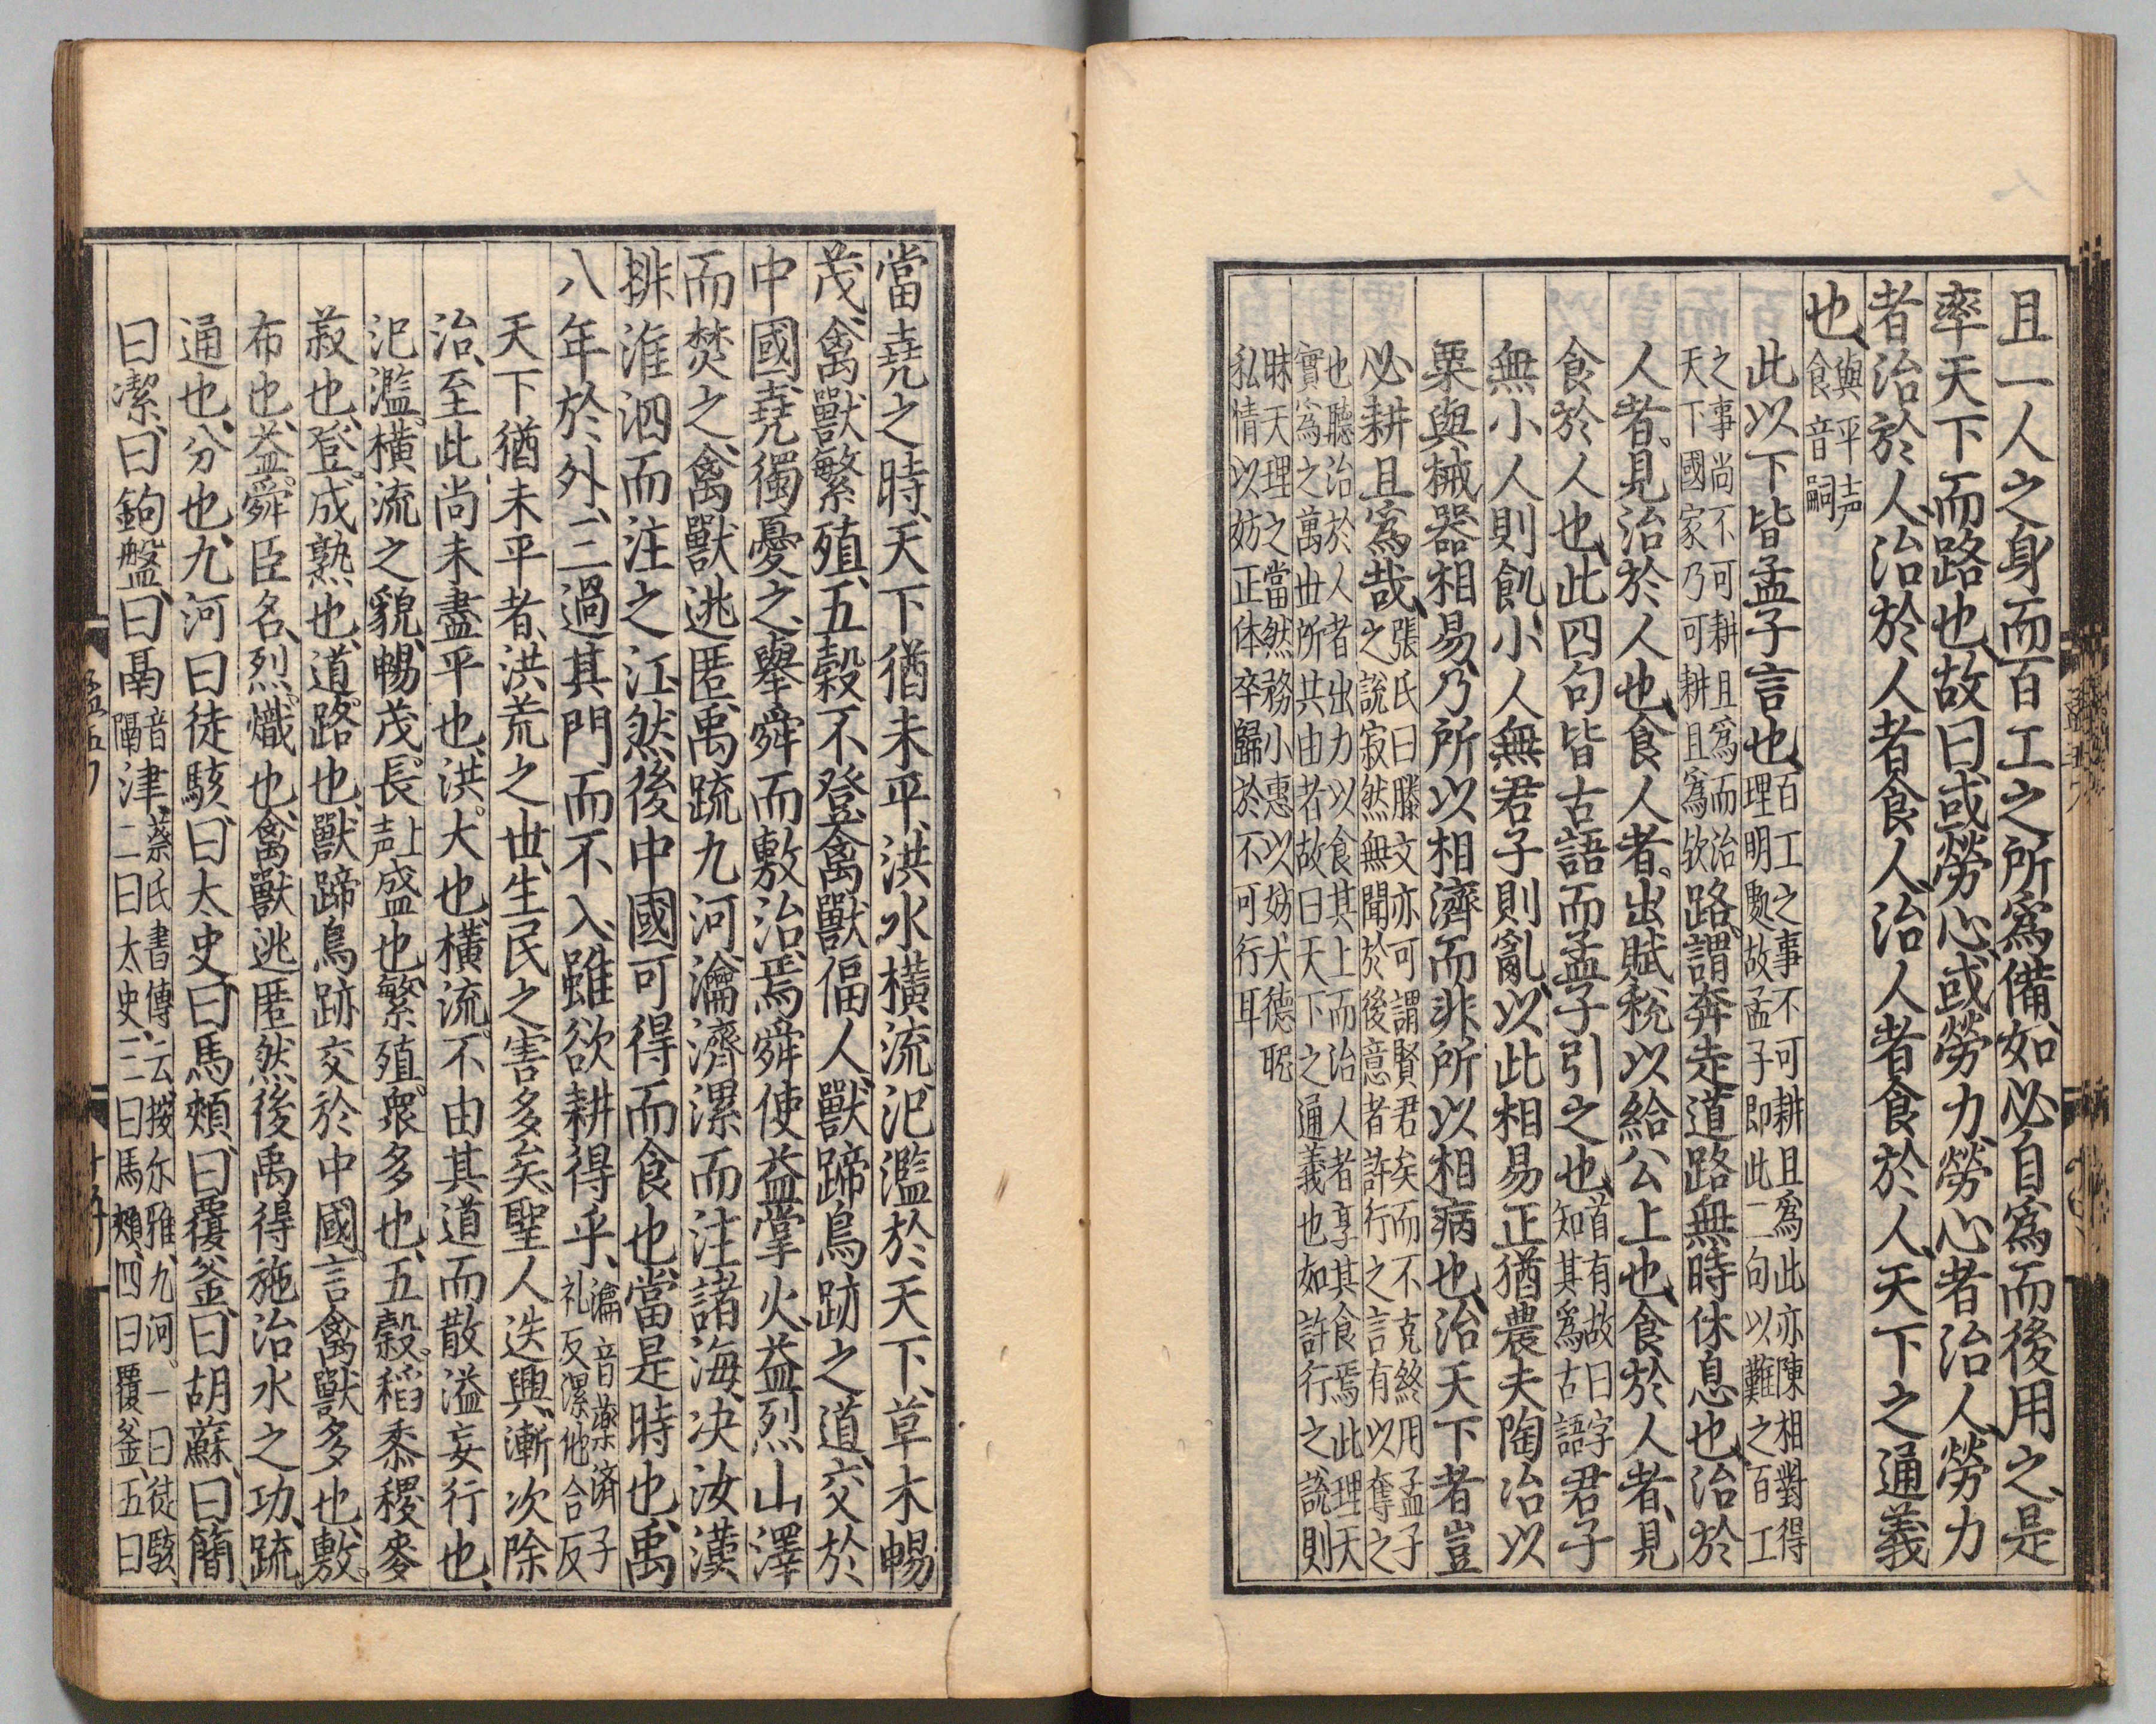 且一人之身而百工之所爲備如必自爲而後用之是
率天下而路也故曰或勞心或勞力勞心者治人勞力
者治於人治於人者食人治人者食於人天下之通義
也與平声
食音嗣
此以下皆孟子言也百工之事不可耕且爲此亦陳相對得
理明處故孟子即此二句以難之百工
之事尚不可耕且爲而治
天下國家乃可耕且爲欤路謂奔走道路無時休息也治於
人者見治於人也食人者出賦税以給公上也食於人者見
食於人也此四句皆古語而孟子引之也首有故曰字
知其爲古語君子
無小人則飢小人無君子則亂以此相易正猶農夫陶冶以
粟與械器相易乃所以相濟而非所以相病也治天下者豈
必耕且爲哉張氏曰滕文亦可謂賢君矣而不克終用孟子
之說寂然無聞於後意者許行之言有以奪之
也聽治於人者出力以食其上而治人者享其食焉此理天
實爲之萬世所共由者故曰天下之通義也如許行之說則
昧天理之當然務小惠以妨大德眤
私情以妨正体卒歸於不可行耳
當堯之時天下猶未平洪水橫流氾濫於天下草木暢
茂禽獸繁殖五穀不登禽獸偪人獸蹄鳥跡之道交於
中國堯獨憂之舉舜而敷治焉舜使益掌火益烈山澤
而焚之禽獸逃匿禹疏九河瀹濟漯而注諸海决汝漢
排淮泗而注之江然後中國可得而食也當是時也禹
八年於外三過其門而不入雖欲耕得乎瀹音藥济子
礼反漯他合反
天下猶未平者洪荒之世生民之害多矣聖人迭興漸次除
治至此尚未盡平也洪大也橫流不由其道而散溢妄行也
氾濫橫流之貌暢茂長上
声盛也繁殖衆多也五穀稻黍稷麥
菽也登成熟也道路也獸蹄鳥跡交於中國言禽獸多也敷
布也益舜臣名烈熾也禽獸逃匿然後禹得施治水之功疏
通也分也九河曰徒駭曰太史曰馬頰曰覆釜曰胡蘇曰簡
曰潔曰鉤盤曰鬲音
隔津蔡氏書傳云按尔雅九河一曰徒駭
二曰太史三曰馬頰四曰覆釜五曰